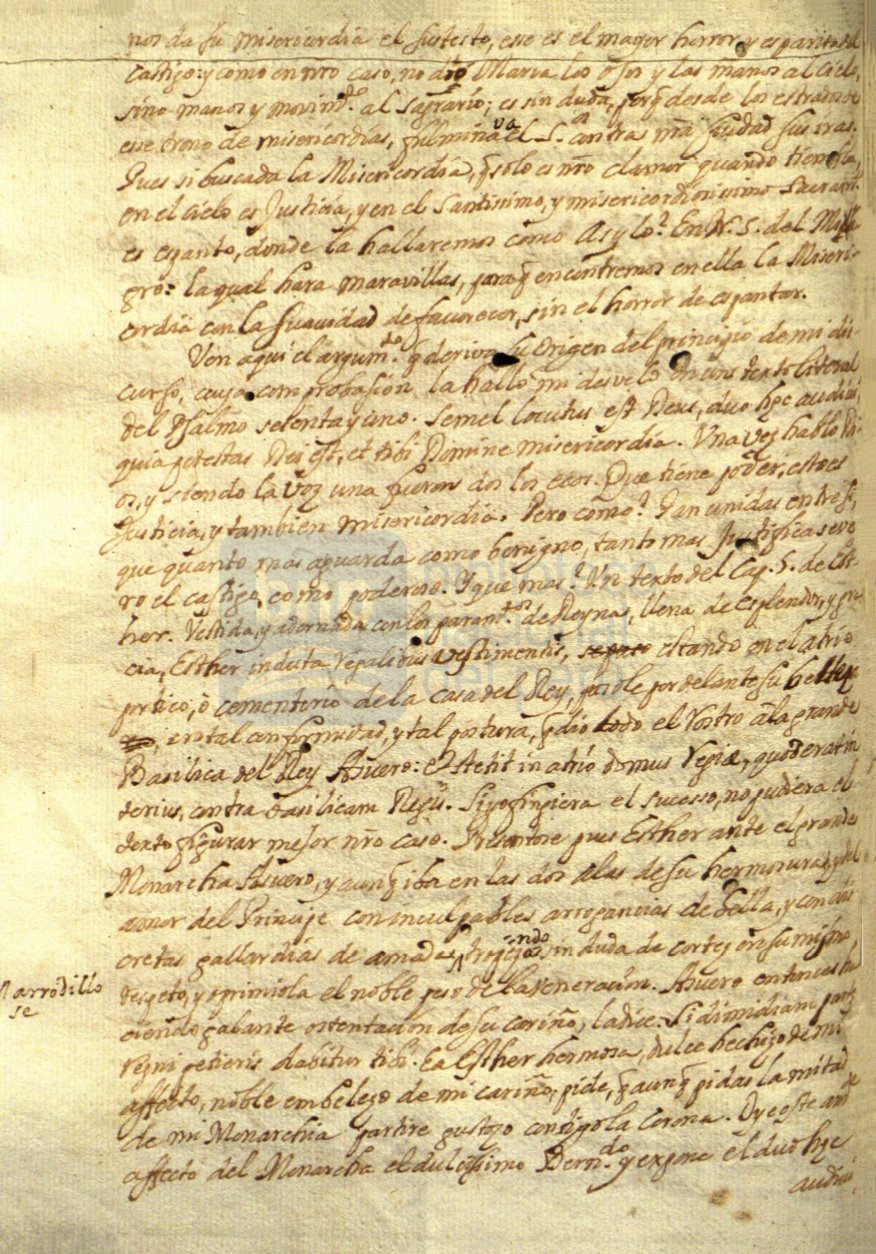 nos da su misericordia el susto, esse es el mayor horror, y espanto del
castigo: y como en nro caso, no alzo Maria los ojos y las manos al Cielo,
sino manos y movim.to al Sagrario; es sin duda, porq̃ desde los estrados de
esse trono de misericordias, fulminava el S.r contra nrã Ciudad sus iras.
Pues si buscada la Misericordia, q̃ solo es nro clamor quando tiembla,
en el cielo es Justicia, y en el Santissimo, y misericordiosissimo Sacram.to
es espanto, donde la hallaremos como Asylo? En N. S. del Mila
gro: la qual hara maravillas, para q̃ encontremos en ella la Miseri-
cordia con la suavidad de favorecer, sin el horror de espantar.
Ven aqui el argum.to q̃ deriva su origen del principio de mi dis-
curso, cuya comprobasion la hallo mi desvelo en un texto literal
del Psalmo sesenta y uno. Semel locutus est Deus, duo hęc audivi,
quia potestas Dei est, et tibi Domine misericordia. Una vez hablo Di-
os, y siendo la voz una fueron dos los ecos. Que tiene poder, esto es
Justicia, y tambien misericordia. Pero como? Tan unidas entre si,
que quanto mas aguarda como benigno, tanto mas Justifica seve
ro el castigo, como poderoso. Y que mas? Un texto del Cap. 5. de Est-
her. Vestida, y adornada con los param.tos de Reyna, llena de esplendor, y gra
cia, Esther induta regalibus vestimentis, estando en el atrio
portico, ò cementerio de la casa del Rey, por delante su belleza
en tal conformidad, y tal postura, q̃ dio todo el rostro à la grande
Basilica del Rey Asuero: et stetit in atrio domus Regiæ, quod erat in
terius, contra basilicam Regis. Si yo fingiera el sucesso, no pudiera el
texto figurar mejor nro caso. Presentose pues Esther ante el grande
Monarcha Asuero, y aunq̃ iba en las dos alas de su hermosura, y del
amor del Principe con inculpables arrogancias de bella, y con dis
cretas gallardias de amada, sin duda de cortes en su mismo
respeto, y oprimiola el noble peso de la veneracion. Asuero entonces ha
ciendo galante ostentacion de su cariño, la dice. Si dimidiam partem
regni petieris dabitur tibi. Ea Esther hermosa, dulce hechizo de mi
affecto, noble embelezo de mi cariño, pide, q̃ aunq̃ pidas la mitad
de mi Monarchia partire gustoso contigo la Corona. Oye este
affecto del Monarcha el dulcissimo Bern.do y expone el duo hęc
audivi
arrodillo
se
biblioteca
nacional
del perú